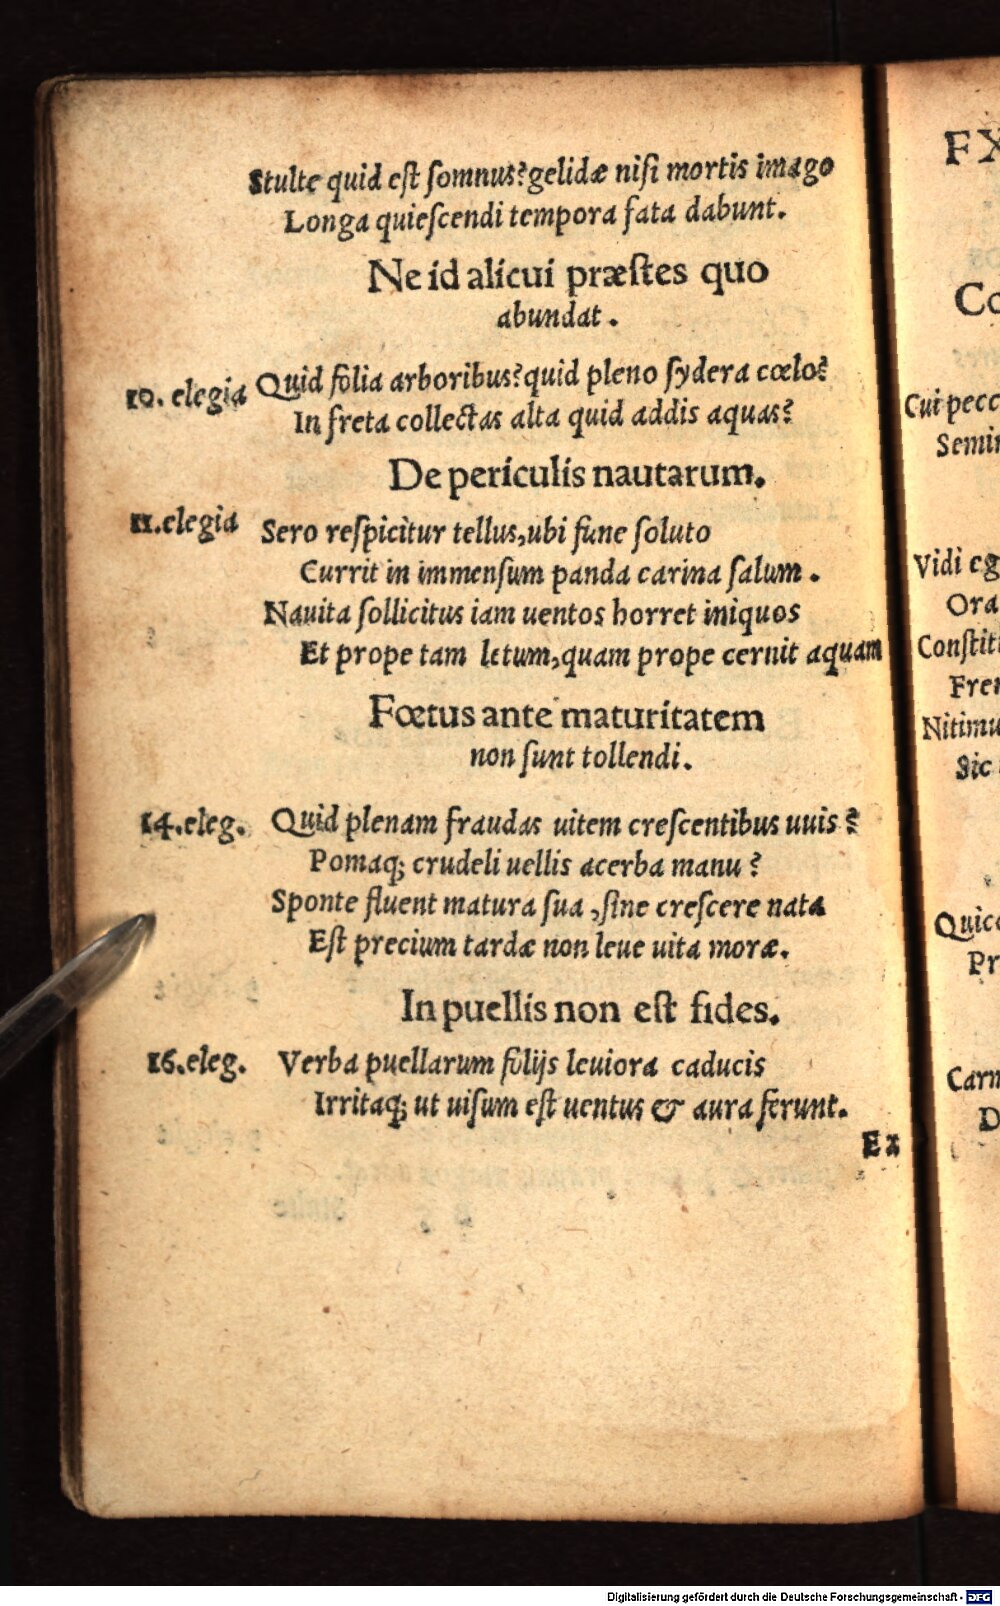 Stulte quid eſt ſomnus? gelidæ niſi mortis imago
Longa quieſcendi tempora fata dabunt.
Ne id alicui præſtes quo
abundat.
10. elegia Quid folia arboribus? quid pleno ſydera cœlo?
In freta collectas alta quid addis aquas?
De periculis nautarum.
11. elegia Sero reſpicitur tellus, ubi fune ſoluto
Currit in immenſum panda carina ſalum.
Nauita ſollicitus iam uentos horret iniquos
Et prope tam letum, quam prope cernit aquam
Fœtus ante maturitatem
non ſunt tollendi.
14. eleg. Quid plenam fraudas uitem creſcentibus uuis?
Pomaq; crudeli uellis acerba manu?
Sponte fluent matura ſua, ſine creſcere nata
Eſt precium tardæ non leue uita moræ.
In puellis non eſt fides.
16. eleg. Verba puellarum folijs leuiora caducis
Irritaq; ut uiſum eſt uentus & aura ferunt.
Ex
FX
Co
Cui pecc
Semin
Vidi eg
Ora
Conſtit
Fre
Nitimu
Sic
Quic
Pr
Carn
D
Digitalisierung gefördert durch die Deutsche Forschungsgemeinschaft - DFG